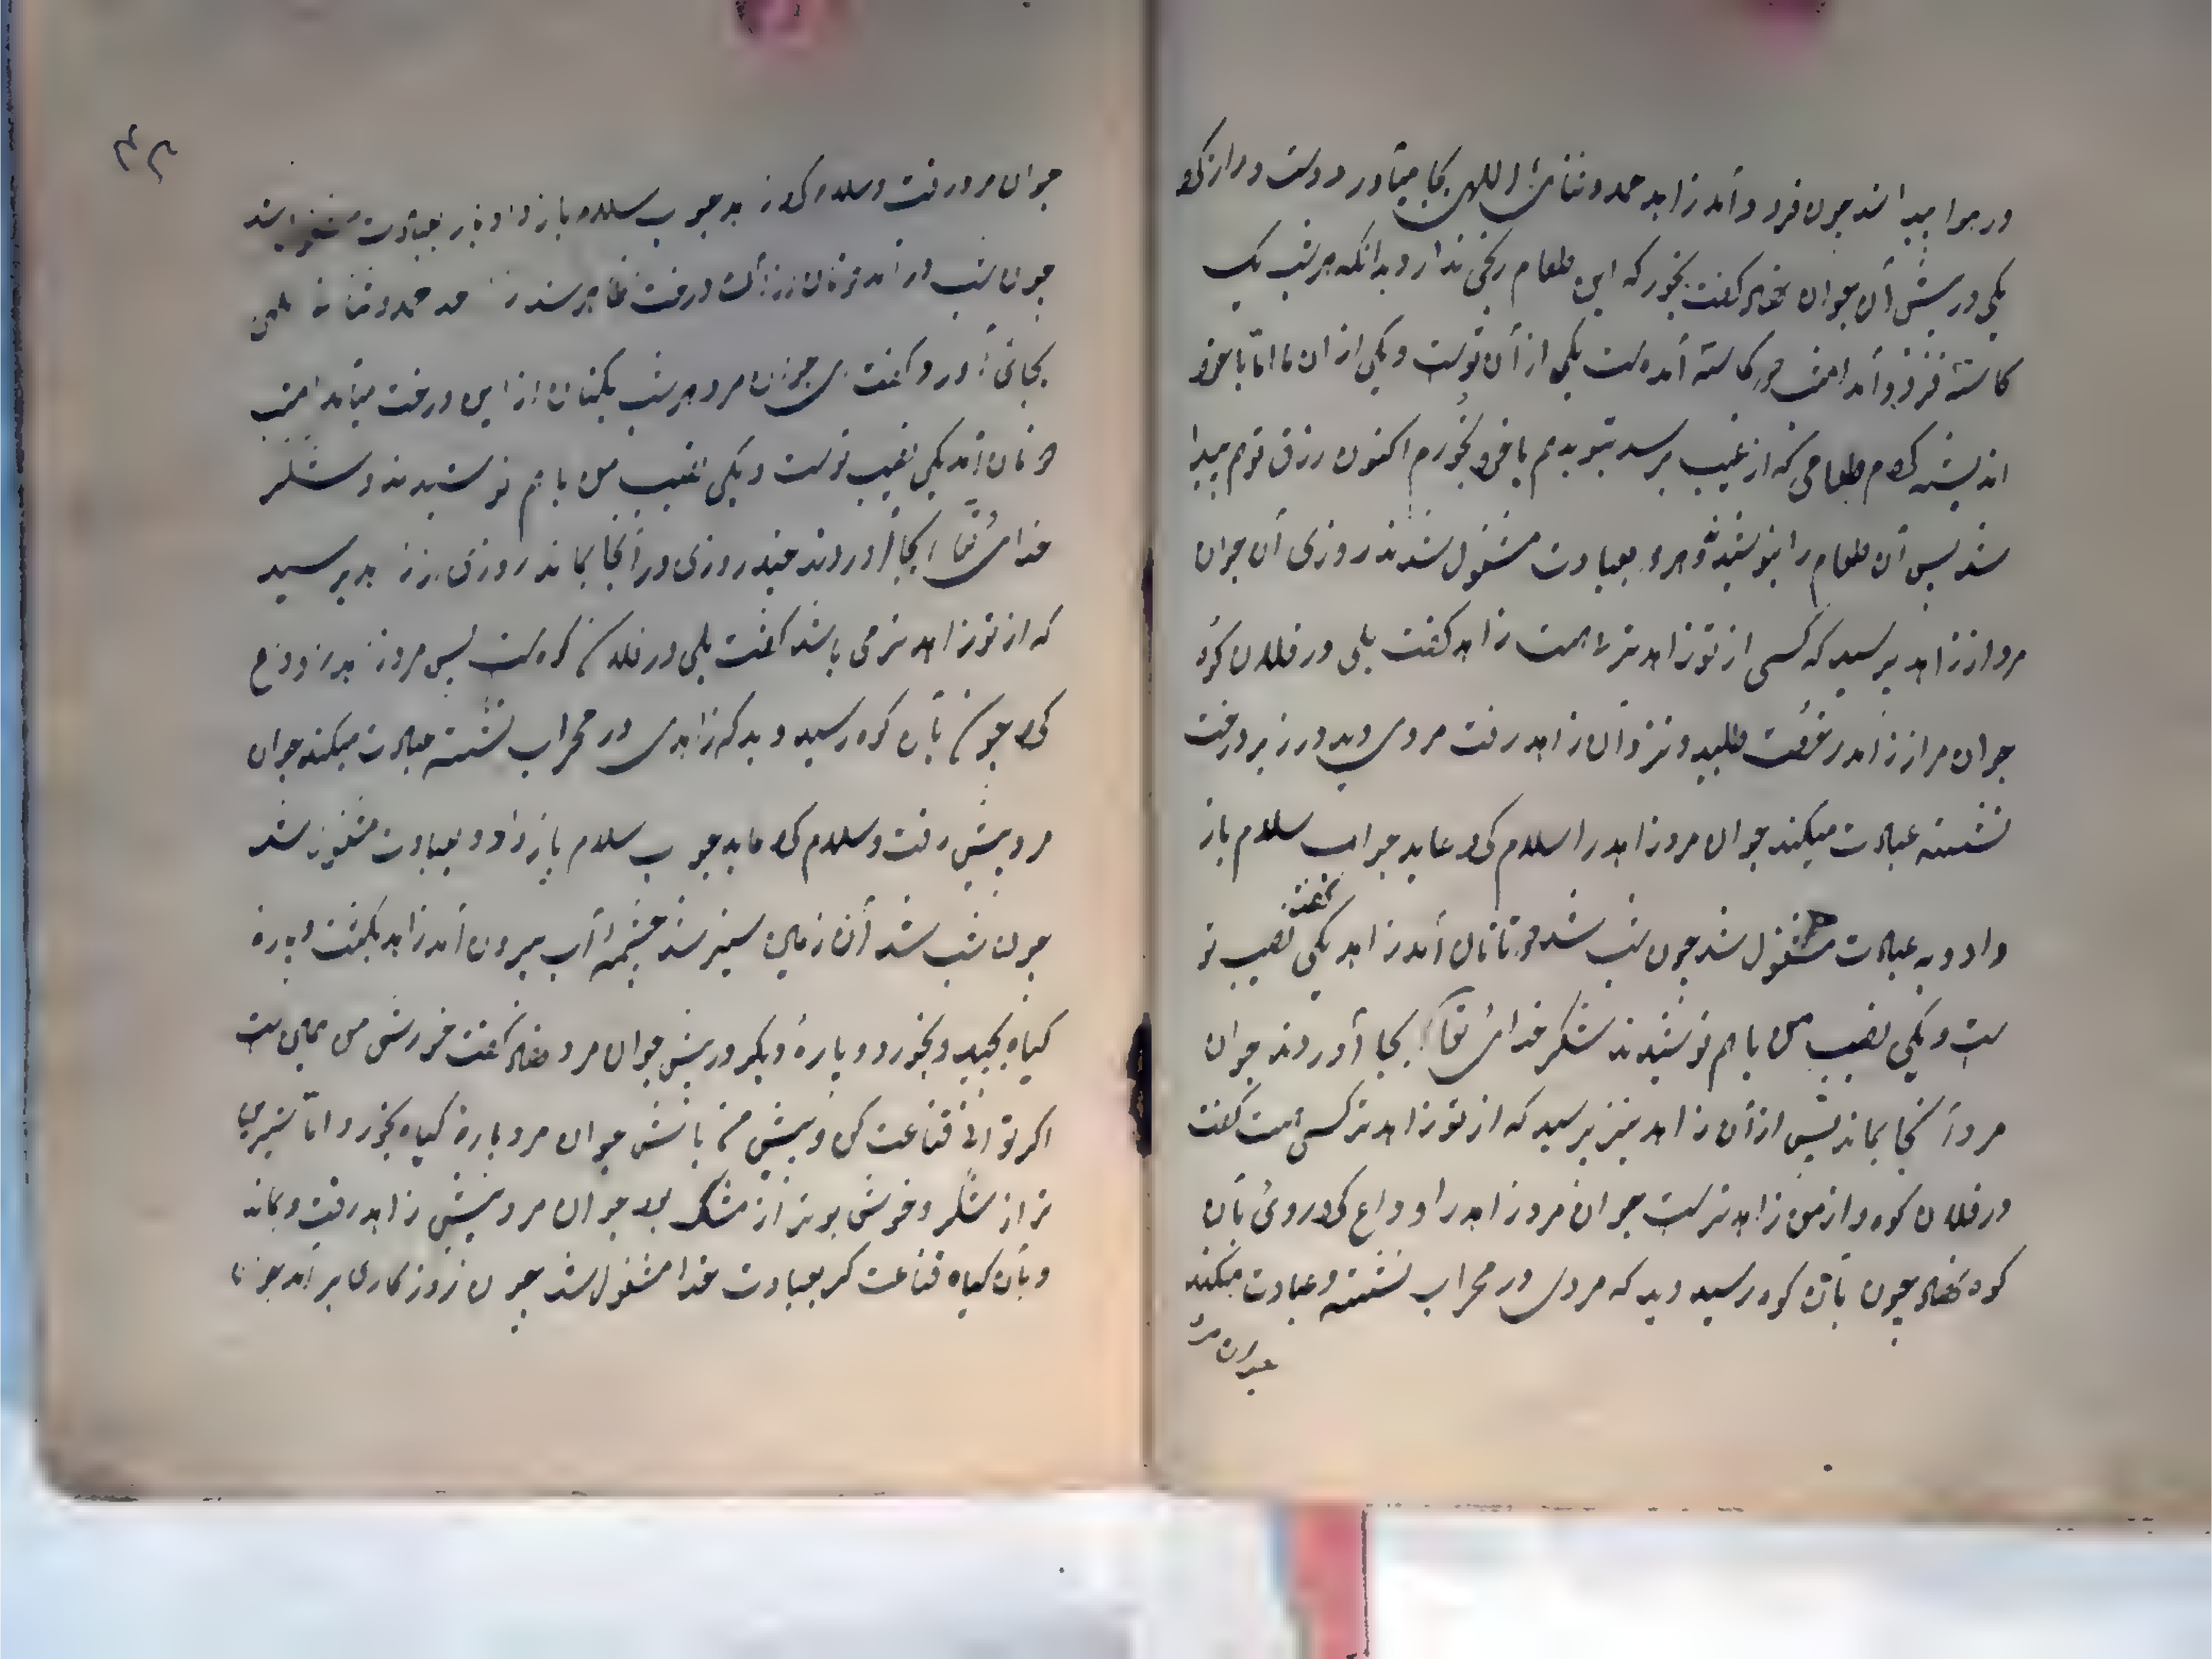 در هوا پیدا شد چون فرود آمد زاهد حمد و ثنای اللهی بجا میآورد دست دراز کرد
یکی در پیش آن جوان نهاد گفت بخور که این طعام رنجی ندارد بدانکه هر شب یک
کاسه فرود آمد امشب دو کاسه آمده است یکی از آن تو است و یکی از آن ما اما با خود
اندیشه کردم طعامی که از غیب برسد بتو بدهم یا خود بخورم اکنون رزق تو هم پیدا
شد پس آن طعام را بنوشیدند و هر دو بعبادت مشغول شدند روزی آن جوان
مرد از زاهد پرسید که کسی از تو زاهدتر هست زاهد گفت بلی در فلان کوه
جوان مرد از زاهد رخصت طلبید و نزد آن زاهد رفت مردی دید در زیر درخت
نشسته عبادت میکند جوان مرد زاهد را سلام کرد عابد جواب سلام باز
داد و به عبادت مشغول شد چون شب شد دو تا نان آمد زاهد گفت یکی نصیب تو
ست و یکی نصیب من با هم نوشیدند شکر خدای تعالی بجا آوردند جوان
مرد آنجا بماند پس از آن زاهد نیز پرسید که از تو زاهدتر کسی هست گفت
در فلان کوه و از من زاهدتر است جوان مرد زاهد را وداع کرد روی بآن
کوه نهاد چون بآن کوه رسید دید که مردی در محراب نشسته و عبادت میکند
جوان مرد
۳۲
جوان مرد رفت و سلام کرد زاهد جواب سلام باز داد باز بعبادت مشغول شد
چون شب در آمد دو نان از آن درخت ظاهر شد زاهد حمد و ثنای الهی
بجای آورد گفت ای جوان مرد هر شب یک نان از این درخت میآمد امشب
دو نان آمد یکی نصیب تو است و یکی نصیب من با هم نوشیدند و شکر
خدای تعالی بجا آوردند چند روزی در آنجا بماند روزی از زاهد پرسید
که از تو زاهدتر می باشد گفت بلی در فلان کوه است پس مرد زاهد را وداع
کرد چون بآن کوه رسید دید که زاهدی در محراب نشسته عبادت میکند جوان
مرد پیش رفت و سلام کرد عابد جواب سلام باز داد و بعبادت مشغول شد
چون شب شد آن زمین سبز شد چشمه آب بیرون آمد زاهد یکمشت و پاره
گیاه بچید و بخورد و پاره دیگر در پیش جوان مرد نهاد گفت خورش من همین است
اگر توانی قناعت کن و پیش من باش جوان مرد پاره گیاه بخورد اما شیرین
تر از شکر و خوش بوتر از مشک بود جوان مرد پیش زاهد رفت و بماند
و بآن گیاه قناعت کرد بعبادت خدا مشغول شد چون روزگاری بر آمد جوان